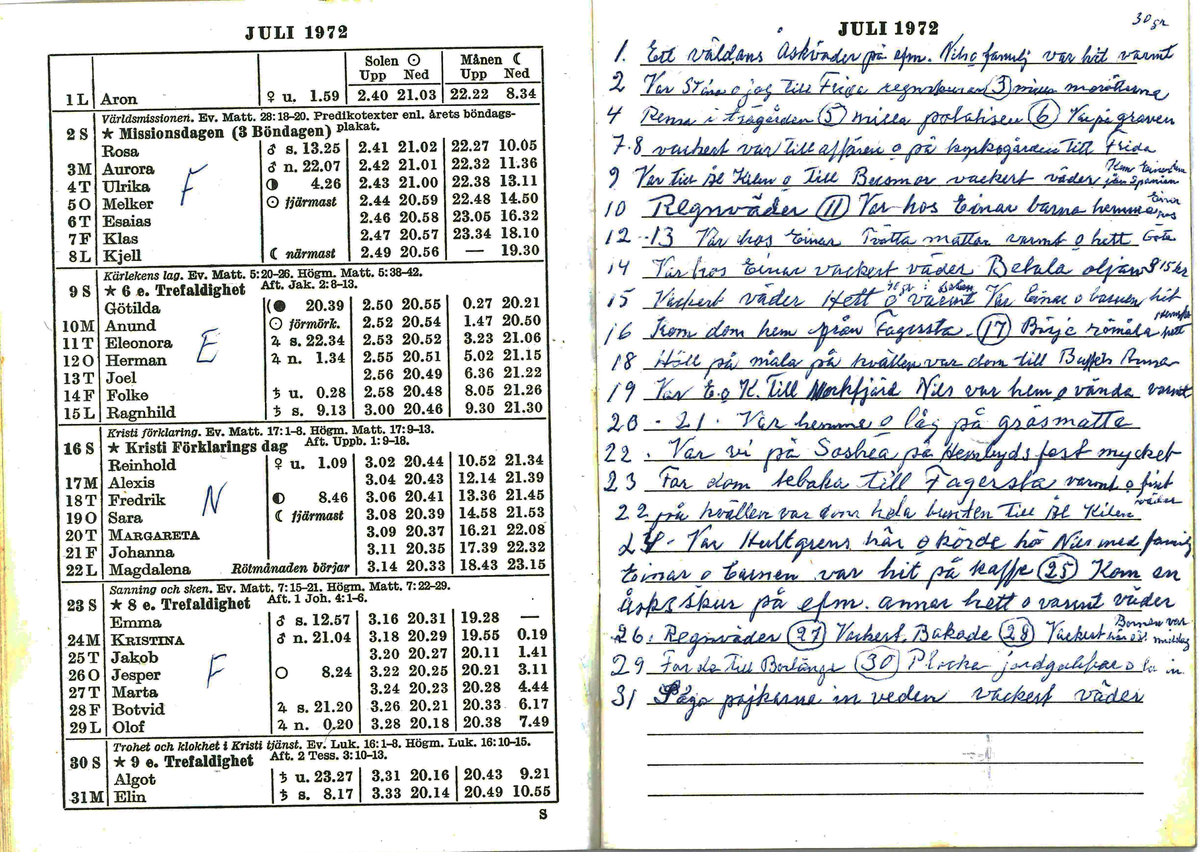 JULI 1972
Solen ☉ Månen ☾
Upp Ned Upp Ned
1 L Aron ♀ u. 1.59 2.40 21.03 22.22 8.34
Världsmissionen. Ev. Matt. 28:18-20. Predikotexter enl. årets böndags-
plakat.
2 S ★ Missionsdagen (3 Böndagen)
Rosa ♂ s. 13.25 2.41 21.02 22.27 10.05
3 M Aurora ♂ n. 22.07 2.42 21.01 22.32 11.36
4 T Ulrika ◑ 4.26 2.43 21.00 22.38 13.11
F
5 O Melker ☉ fjärmast 2.44 20.59 22.48 14.50
6 T Esaias 2.46 20.58 23.05 16.32
7 F Klas 2.47 20.57 23.34 18.10
8 L Kjell ☾ närmast 2.49 20.56 — 19.30
Kärlekens lag. Ev. Matt. 5:20-26. Högm. Matt. 5:38-42.
Aft. Jak. 2:8-13.
9 S ★ 6 e. Trefaldighet
Götilda (● 20.39 2.50 20.55 0.27 20.21
10 M Anund ☉ förmörk. 2.52 20.54 1.47 20.50
11 T Eleonora ♃ s. 22.34 2.53 20.52 3.23 21.06
E
12 O Herman ♃ n. 1.34 2.55 20.51 5.02 21.15
13 T Joel 2.56 20.49 6.36 21.22
14 F Folke ♄ u. 0.28 2.58 20.48 8.05 21.26
15 L Ragnhild ♄ s. 9.13 3.00 20.46 9.30 21.30
Kristi förklaring. Ev. Matt. 17:1-8. Högm. Matt. 17:9-13.
Aft. Uppb. 1:9-18.
16 S ★ Kristi Förklarings dag
Reinhold ♀ u. 1.09 3.02 20.44 10.52 21.34
17 M Alexis 3.04 20.43 12.14 21.39
18 T Fredrik ◐ 8.46 3.06 20.41 13.36 21.45
N
19 O Sara ☾ fjärmast 3.08 20.39 14.58 21.53
20 T MARGARETA 3.09 20.37 16.21 22.08
21 F Johanna 3.11 20.35 17.39 22.32
22 L Magdalena Rötmånaden börjar 3.14 20.33 18.43 23.15
Sanning och sken. Ev. Matt. 7:15-21. Högm. Matt. 7:22-29.
Aft. 1 Joh. 4:1-6.
23 S ★ 8 e. Trefaldighet
Emma ♂ s. 12.57 3.16 20.31 19.28 —
24 M KRISTINA ♂ n. 21.04 3.18 20.29 19.55 0.19
25 T Jakob 3.20 20.27 20.11 1.41
F
26 O Jesper ○ 8.24 3.22 20.25 20.21 3.11
27 T Marta 3.24 20.23 20.28 4.44
28 F Botvid ♃ s. 21.20 3.26 20.21 20.33 6.17
29 L Olof ♃ n. 0.20 3.28 20.18 20.38 7.49
Trohet och klokhet i Kristi tjänst. Ev. Luk. 16:1-8. Högm. Luk. 16:10-15.
Aft. 2 Tess. 3:10-13.
30 S ★ 9 e. Trefaldighet
Algot ♄ u. 23.27 3.31 20.16 20.43 9.21
31 M Elin ♄ s. 8.17 3.33 20.14 20.49 10.55
S
JULI 1972
30 gr
1. Ett väldans Åskväder på efm. Nils o familj var hit varmt
2 Var o jag till Frida regnskurar (3) morötterna
4 Rensa i trägården (5) potatisen (6) Var på graven
7.8 vackert var till affären o på kyrkogården till Frida
9 Var till Bl Kilen o till Busmor vackert väder
från Spanien
10 Regnväder (11) Var hos Einar barna hemma
Einar
12-13 Var hos Einar Tvätta mattor varmt o hett Göta
14 Var hos Einar vackert väder Betala oljan 815 kr
15 Vackert väder Hett o varmt Var Einar o barnen hit
16 Kom dom hem från Fagersta. (17) Börja rödmåla hett
18 Höll på måla på kvällen var dom till Anna
19 Var E. o K. till Morkfjärd Nils var hem o vända varmt
20 - 21. Var hemme o låg på gräsmatta
22. Var vi på på Hembygdsfest mycket
23 Far dom tebaka till Fagersta varmt o fint
väder
22 på kvällen var dom hela bunten till Bl Kilen
24. Var Hultgrens här o körde hö Nils med familj
Einar o barnen var hit på kaffe (25) Kom en
åskskur på efm. annar hett o varmt väder
Barnen var
26. Regnväder (27) Vackert. Bakade (28) Vackert här middag
29 Far de till Borlänge (30) Plocka jordgubbar o la in
31 Såga pojkarne in veden vackert väder